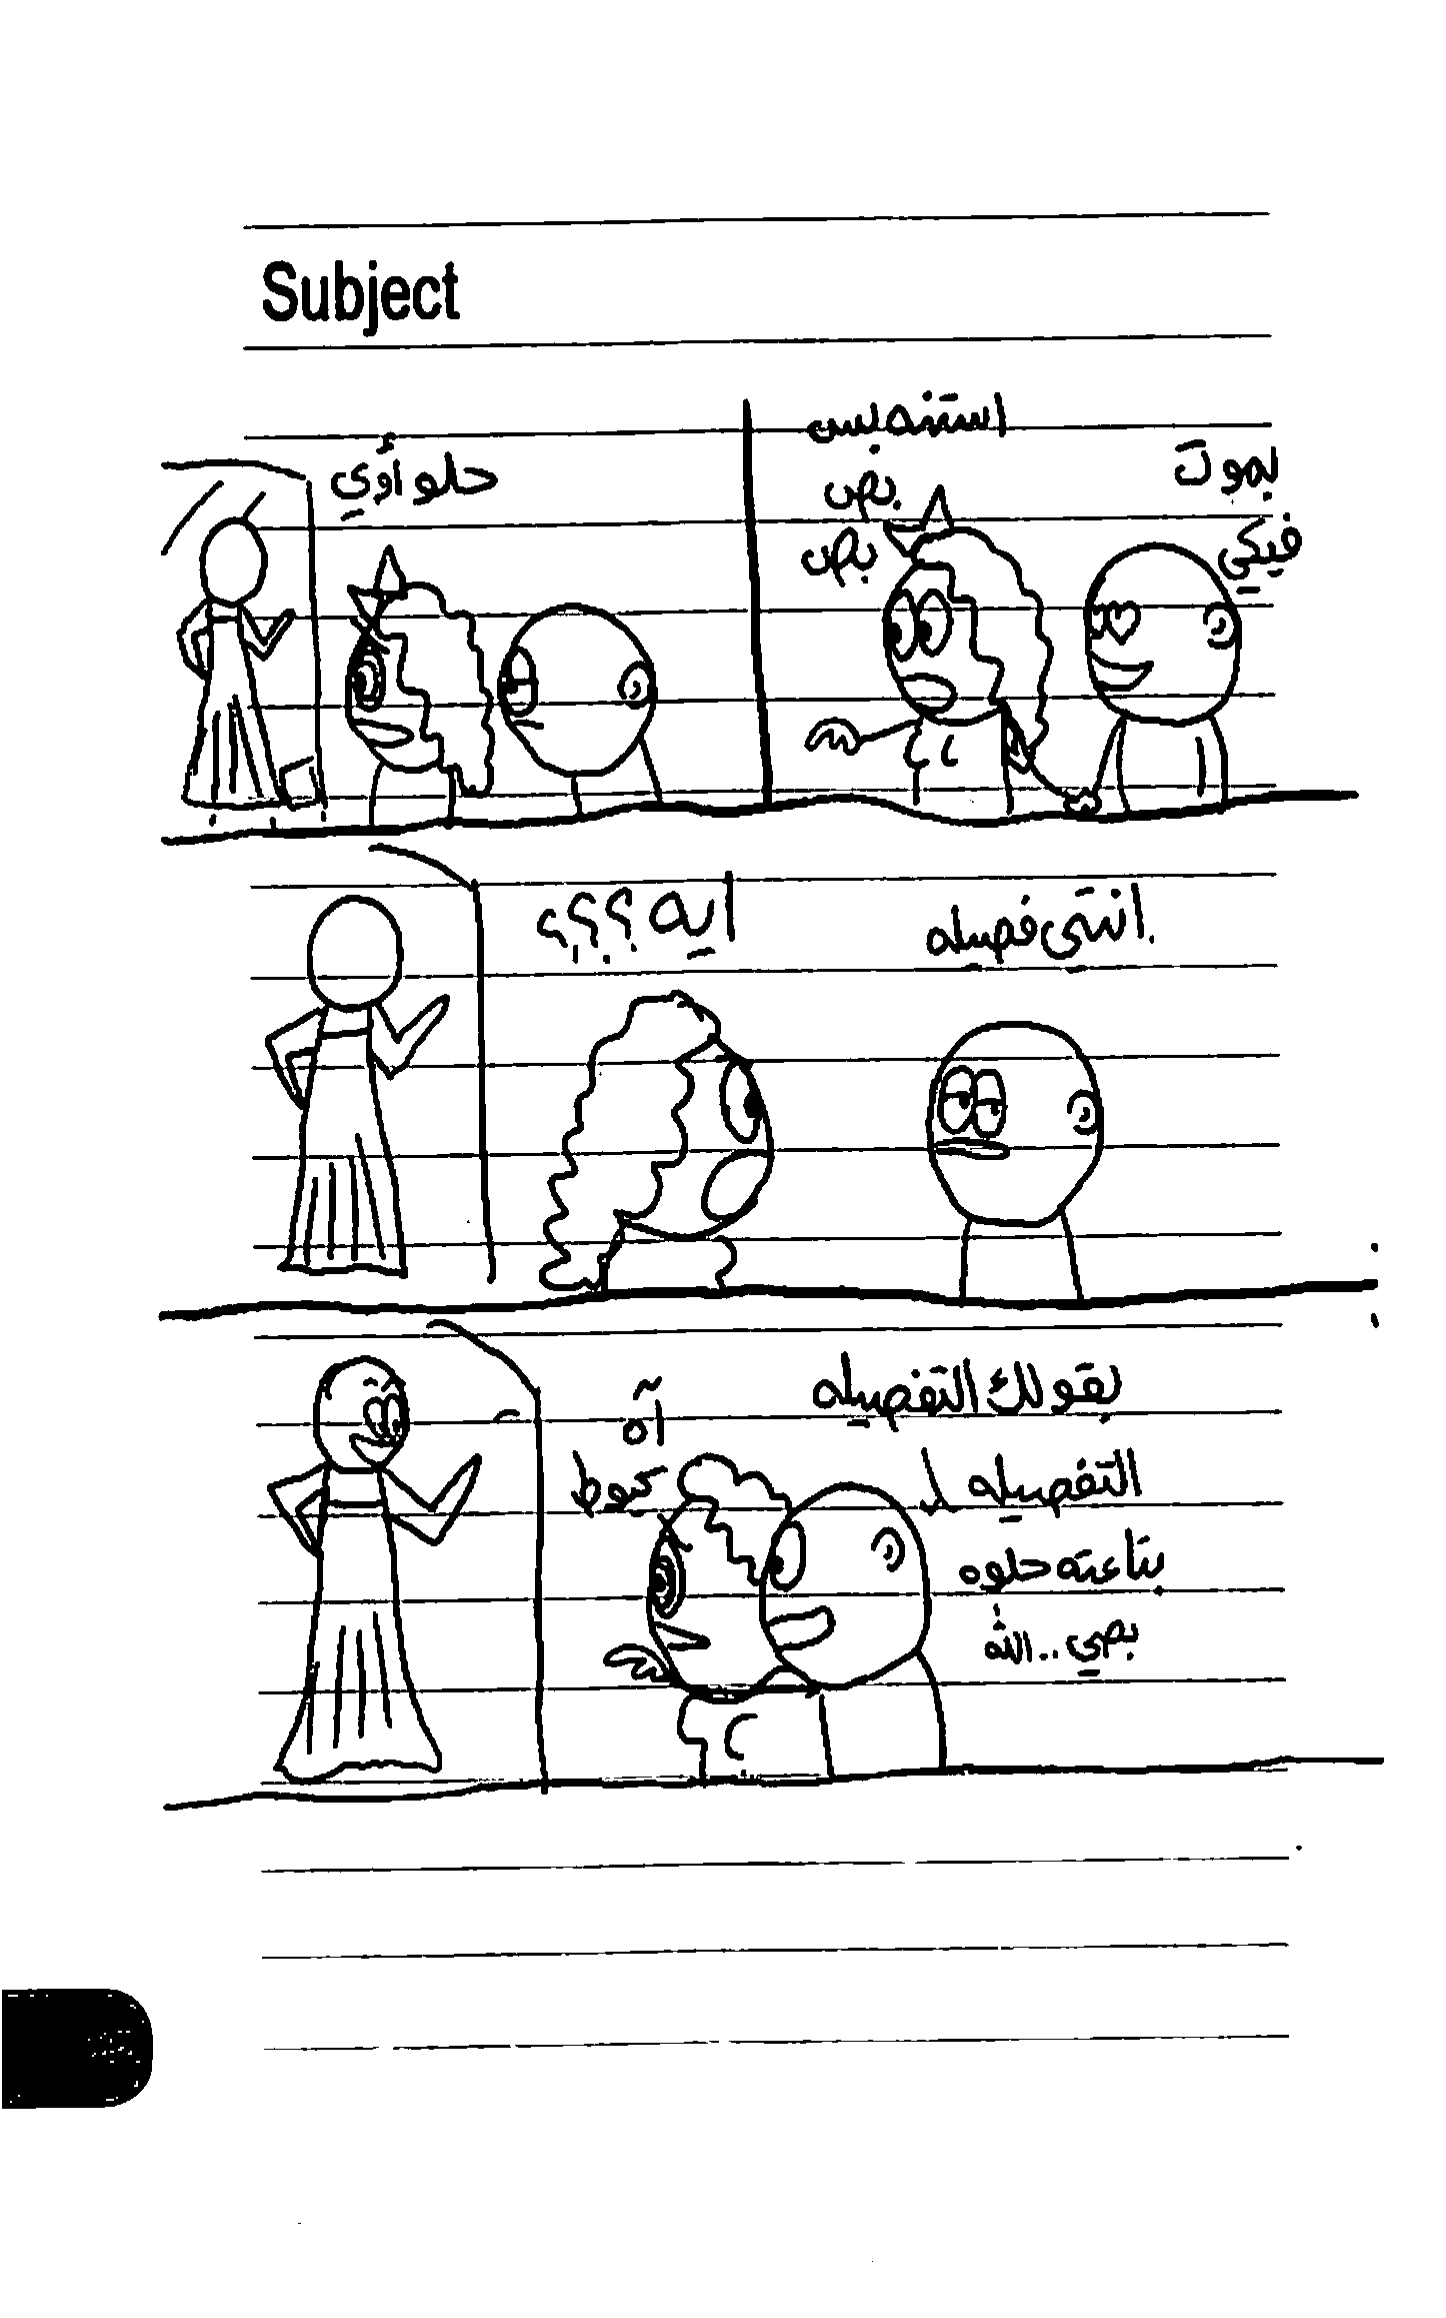 Subject
بموت
فيكي
استنه بس
بص
بص
حلو أوي
انتي فصيله
ايه ؟؟؟
بقولك التفصيله
التفصيله
بتاعته حلوه
بصي .. الله
آه
كيوط